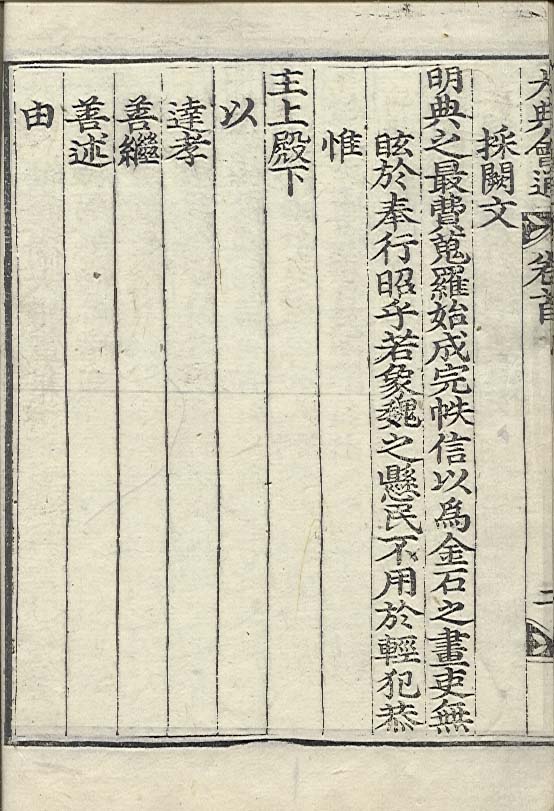 大典會通 卷首 二
採闕文
明典之最費蒐羅始成完帙信以爲金石之畫吏無
眩於奉行昭乎若象魏之懸民不用於輕犯恭
惟
主上殿下
以
達孝
善繼
善述
由